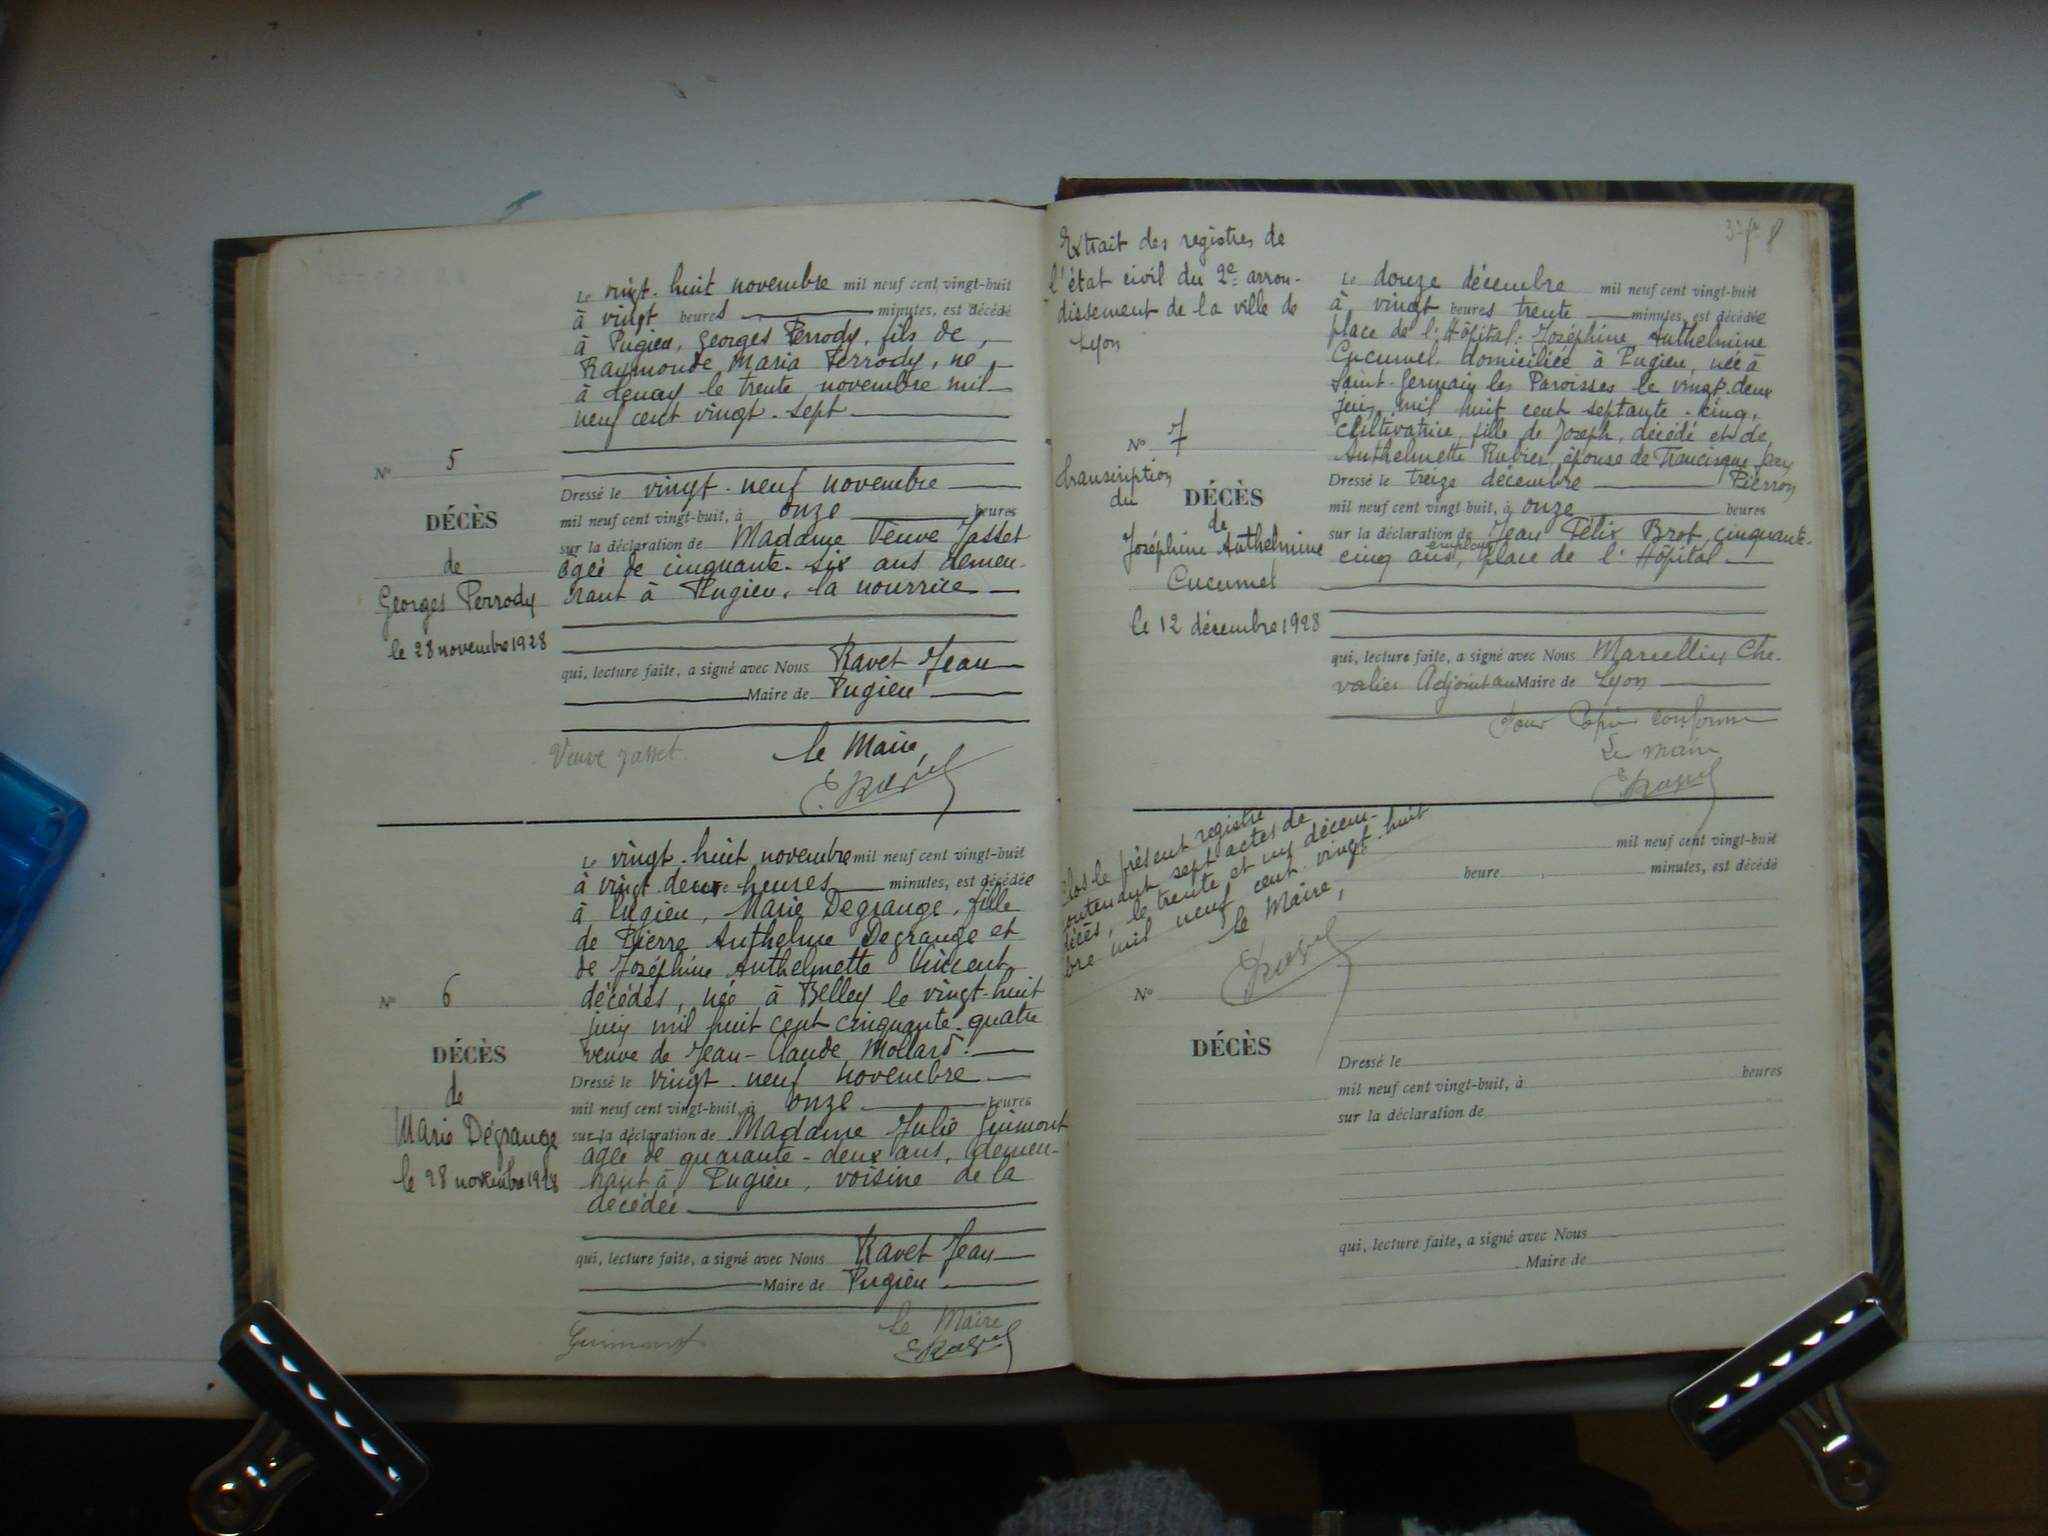 Le vingt-huit novembre mil neuf cent vingt-huit
à vingt heures minutes, est décédé
à Pugieu, Georges Perrody, fils de
Raymonde Maria Perrody, né
à Tenay le trente novembre mil
neuf cent vingt-sept
N° 5
DÉCÈS
de
Georges Perrody
le 28 novembre 1928
Dressé le vingt-neuf novembre
mil neuf cent vingt-huit, à onze heures
sur la déclaration de Madame Veuve Jasset
âgée de cinquante-six ans demeu-
rant à Pugieu, la nourrice
qui, lecture faite, a signé avec Nous Ravet Jean
Maire de Pugieu
Veuve Jasset le Maire,
Le vingt-huit novembre mil neuf cent vingt-huit
à vingt deux heures minutes, est décédée
à Pugieu, Marie Degrange, fille
de Pierre Anthelme Degrange et
de Joséphine Anthelmette Vincent
décédés, née à Belley le vingt-huit
juin mil huit cent cinquante-quatre
veuve de Jean-Claude Mollard.
N° 6
DÉCÈS
de
Marie Dégrange
le 28 novembre 1928
Dressé le vingt-neuf novembre
mil neuf cent vingt-huit, à onze heures
sur la déclaration de Madame Julie Guimont
âgée de quarante-deux ans, demeu-
rant à Pugieu, voisine de la
décédée
qui, lecture faite, a signé avec Nous Ravet Jean
Maire de Pugieu
Guimont le Maire
Extrait des registres de
l'état civil du 2e arron-
dissement de la ville de
Lyon
N° 7
Transcription
du
DÉCÈS
de
Joséphine Anthelmine
Cucumel
le 12 décembre 1928
Le douze décembre mil neuf cent vingt-huit
à vingt heures trente minutes, est décédée
place de l'Hôpital: Joséphine Anthelmine
Cucumel domiciliée à Pugieu, née à
Saint-Germain les Paroisses le vingt-deux
juin mil huit cent septante-cinq,
cultivatrice, fille de Joseph, décédé et de
Anthelmette Rubier, épouse de Francisque
Pierron
Dressé le treize décembre
mil neuf cent vingt-huit, à onze heures
sur la déclaration de Jean Félix Brot, cinquante-
cinq ans, employé place de l'Hôpital
qui, lecture faite, a signé avec Nous Marcellin Che-
valier Adjoint au Maire de Lyon
Pour Copie conforme
Le maire
Clos le présent registre
contenant sept actes de
décès, le trente et un décem-
bre mil neuf cent vingt-huit
le Maire,
mil neuf cent vingt-huit
heure minutes, est décédé
N°
DÉCÈS
Dressé le
mil neuf cent vingt-huit, à heures
sur la déclaration de
qui, lecture faite, a signé avec Nous
Maire de